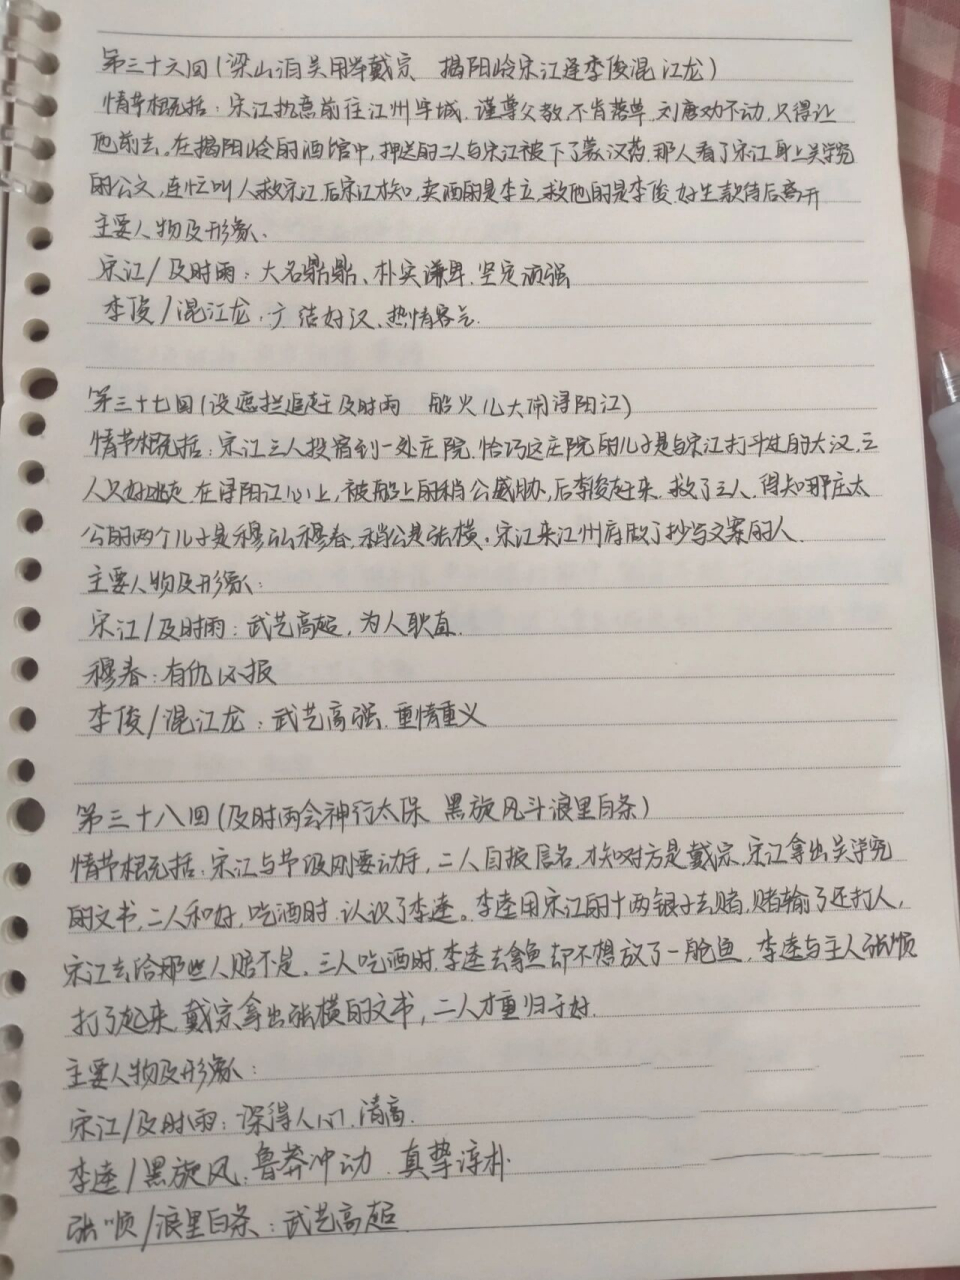 第三十六回(梁山泊吴用举戴宗 揭阳岭宋江逢李俊混江龙)
情节概括:宋江执意前往江州牢城,谨尊父教,不肯落草,刘唐劝不动,只得让
他前去。在揭阳岭的酒馆中,押送的二人与宋江被下了蒙汗药,那人看了宋江身上吴学究
的公文,连忙叫人救宋江,后宋江才知,卖酒的是李立,救他的是李俊,好生款待后离开
主要人物及形象、
宋江/及时雨:大名鼎鼎、朴实谦卑,坚定顽强
李俊/混江龙:广结好汉、热情客气.
第三十七回(没遮拦追赶及时雨 船火儿大闹浔阳江)
情节概括:宋江三人投宿到一处庄院,恰巧这庄院的儿子是与宋江打斗过的大汉,三
人只好逃走,在浔阳江心上,被船上的稍公威胁,后李俊赶来,救了三人,得知那庄太
公的两个儿子是穆弘穆春,稍公是张横,宋江来江州府做了抄写文案的人.
主要人物及形象:
宋江/及时雨:武艺高超,为人耿直.
穆春:有仇必报
李俊/混江龙:武艺高强,重情重义
第三十八回(及时雨会神行太保 黑旋风斗浪里白条)
情节概括:宋江与节级刚要动手,二人自报居名,才知对方是戴宗,宋江拿出吴学究
的文书,二人和好,吃酒时,认识了李逵。李逵用宋江的十两银子去赌,赌输了还打人,
宋江去给那些人赔不是,三人吃酒时,李逵去拿鱼却不想放了一舱鱼,李逵与主人张顺
打了起来,戴宗拿出张横的文书,二人才重归于好.
主要人物及形象:
宋江/及时雨:深得人心,清高.
李逵/黑旋风:鲁莽冲动、真挚淳朴
张顺/浪里白条:武艺高超